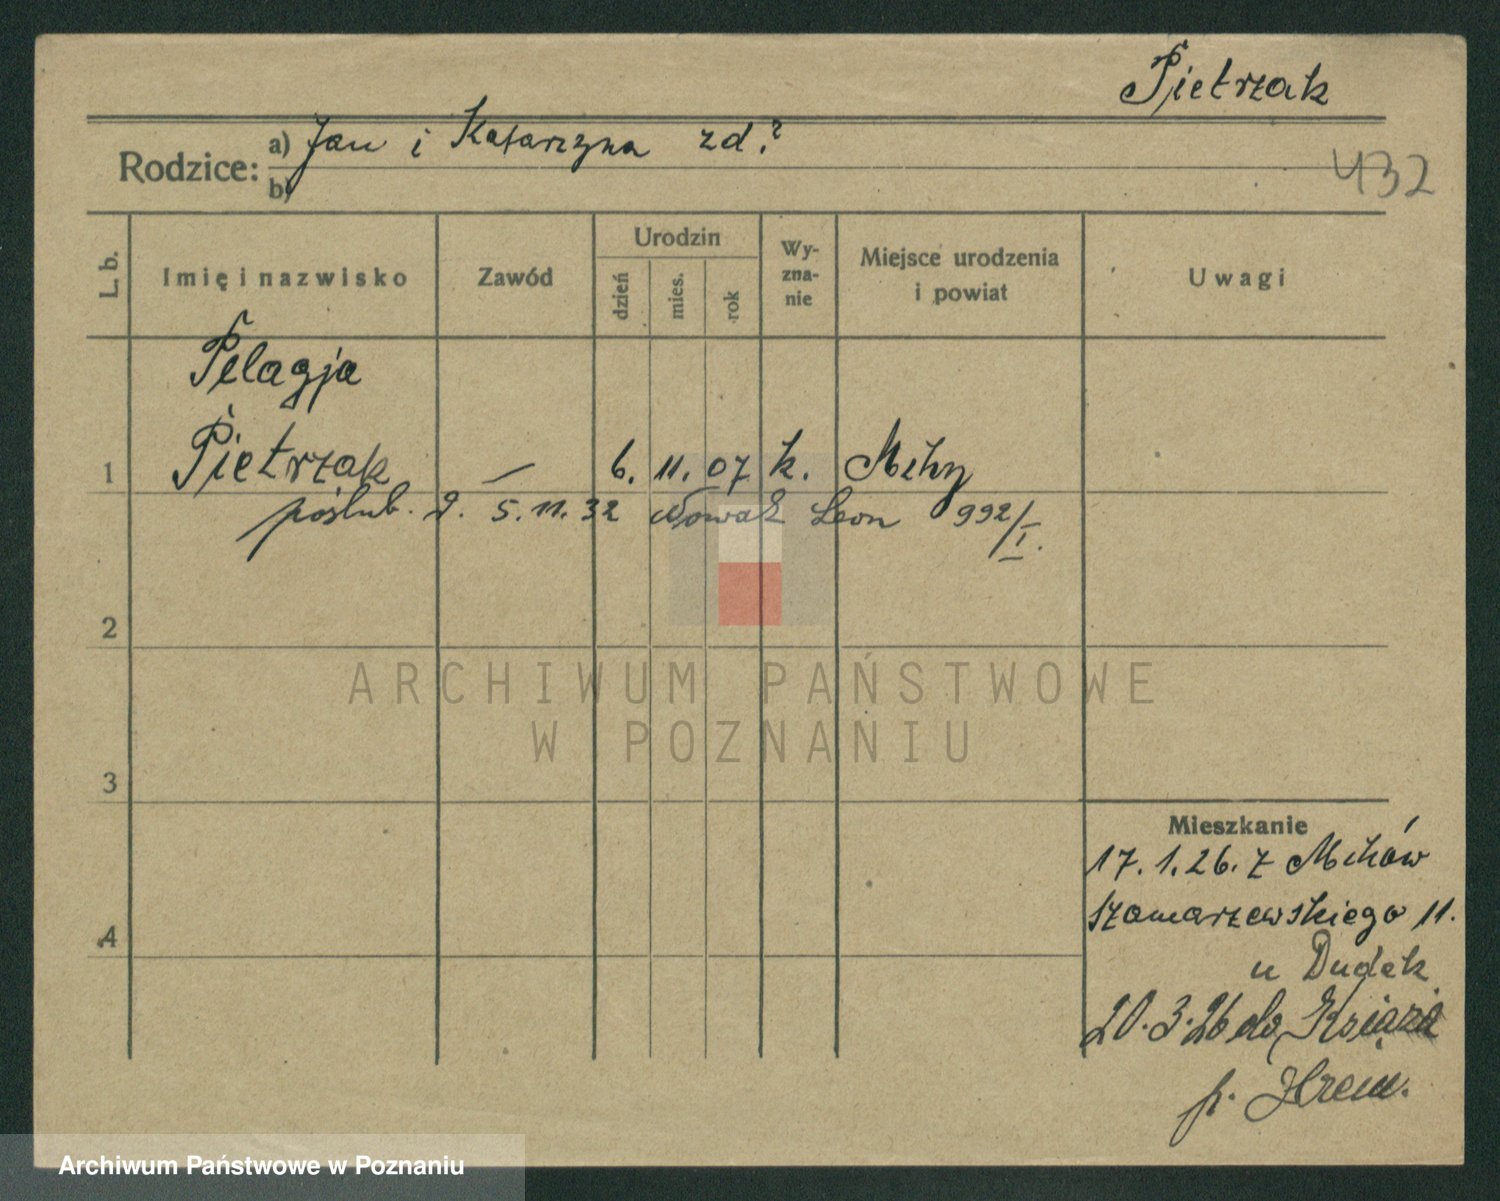 Pietrzak
Rodzice:
a) Jan i Katarzyna zd.?
b)
432
L. b.
Imię i nazwisko
Zawód
Urodzin
dzień
mies.
rok
Wy-
zna-
nie
Miejsce urodzenia
i powiat
Uwagi
Pelagja
1 Pietrzak — 6. 11. 07 k.
poślub. d. 5.11.32 Nowak Leon 992/I.
2
ARCHIWUM PAŃSTWOWE
W POZNANIU
3
Mieszkanie
17.1.26. z
4 Szamarzewskiego 11.
u Dudek
20.3.26 do Książa
p. Śrem.
Archiwum Państwowe w Poznaniu